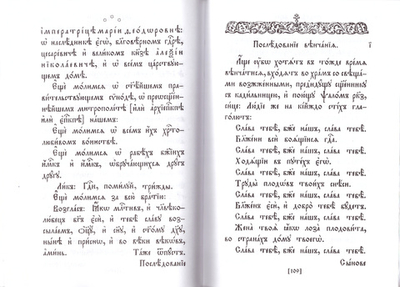 імператрі́цѣ марі́и ѳео́дѡровнѣ,
и҆ ѡ҆ наслѣ́дникѣ є҆гѡ̀, бл҃говѣ́рномъ гдⷭ҇рѣ,
цесаре́вичѣ и҆ вели́комъ кн҃зѣ а҆леѯі́и
нїкола́евичѣ, и҆ ѡ҆ все́мъ ца́рствꙋю-
щемъ до́мѣ.
Е҆щѐ мо́лимсѧ ѡ҆ ст҃ѣ́йшемъ пра-
ви́тельствꙋющемъ сѷно́дѣ, и҆ ѡ҆ прео-
сщ҃е́ннѣйшемъ митрополі́тѣ [и҆лѝ а҆рхїепⷭ҇кпѣ
и҆лѝ є҆пⷭ҇кпѣ] на́шемъ.
Е҆щѐ мо́лимсѧ ѡ҆ все́мъ и҆́хъ хрⷭ҇то-
люби́вомъ во́инствѣ.
Е҆щѐ мо́лимсѧ ѡ҆ рабѣ́хъ бж҃їихъ
и҆м҃къ и҆ и҆м҃къ, ѡ҆брꙋча́ющихсѧ дрꙋ́гъ
дрꙋ́гꙋ.
Ли́къ: Гдⷭ҇и, поми́лꙋй, три́жды.
Е҆щѐ мо́лимсѧ за всю̀ бра́тїю:
Во́згласъ: Ꙗ҆́кѡ млⷭ҇тивъ, и҆ чл҃вѣко-
лю́бецъ бг҃ъ є҆сѝ, и҆ тебѣ̀ сла́вꙋ возсы-
ла́емъ, ѻ҆ц҃ꙋ̀, и҆ сн҃ꙋ, и҆ ст҃о́мꙋ дх҃ꙋ,
ны́нѣ и҆ при́снѡ, и҆ во вѣ́ки вѣкѡ́въ,
а҆ми́нь. Та́же ѿпꙋ́стъ.
Послѣ́дованїе
Послѣ́дованїе вѣнча́нїѧ.
А҆́ще ᲂу҆́бѡ хотѧ́тъ въ то́жде вре́мѧ
вѣнча́тисѧ, вхо́дѧтъ во хра́мъ со свѣща́-
ми возже́нными, предидꙋ́щꙋ сщ҃е́нникꙋ
съ кади́льницею, и҆ пою́щꙋ ѱало́мъ рк҃з,
сі́це: Лю́дїе же на кі́йждо сті́хъ гла-
го́лютъ:
Сла́ва тебѣ̀, бж҃е на́шъ, сла́ва тебѣ̀.
Бл҃же́ни всѝ боѧ́щїисѧ гдⷭ҇а.
Сла́ва тебѣ̀, бж҃е на́шъ, сла́ва тебѣ̀.
Ходѧ́щїи въ пꙋте́хъ є҆гѡ̀.
Сла́ва тебѣ̀, бж҃е на́шъ, сла́ва тебѣ̀.
Трꙋды̀ плодѡ́въ твои́хъ снѣ́си.
Сла́ва тебѣ̀, бж҃е на́шъ, сла́ва тебѣ̀.
Бл҃же́нъ є҆сѝ, и҆ добро̀ тебѣ̀ бꙋ́детъ.
Сла́ва тебѣ̀, бж҃е на́шъ, сла́ва тебѣ̀.
Жена̀ твоѧ̀ ꙗ҆́кѡ лоза̀ плодови́та,
во страна́хъ до́мꙋ твоегѡ̀.
Сла́ва тебѣ̀, бж҃е на́шъ, сла́ва тебѣ̀.
[109] Сы́нове